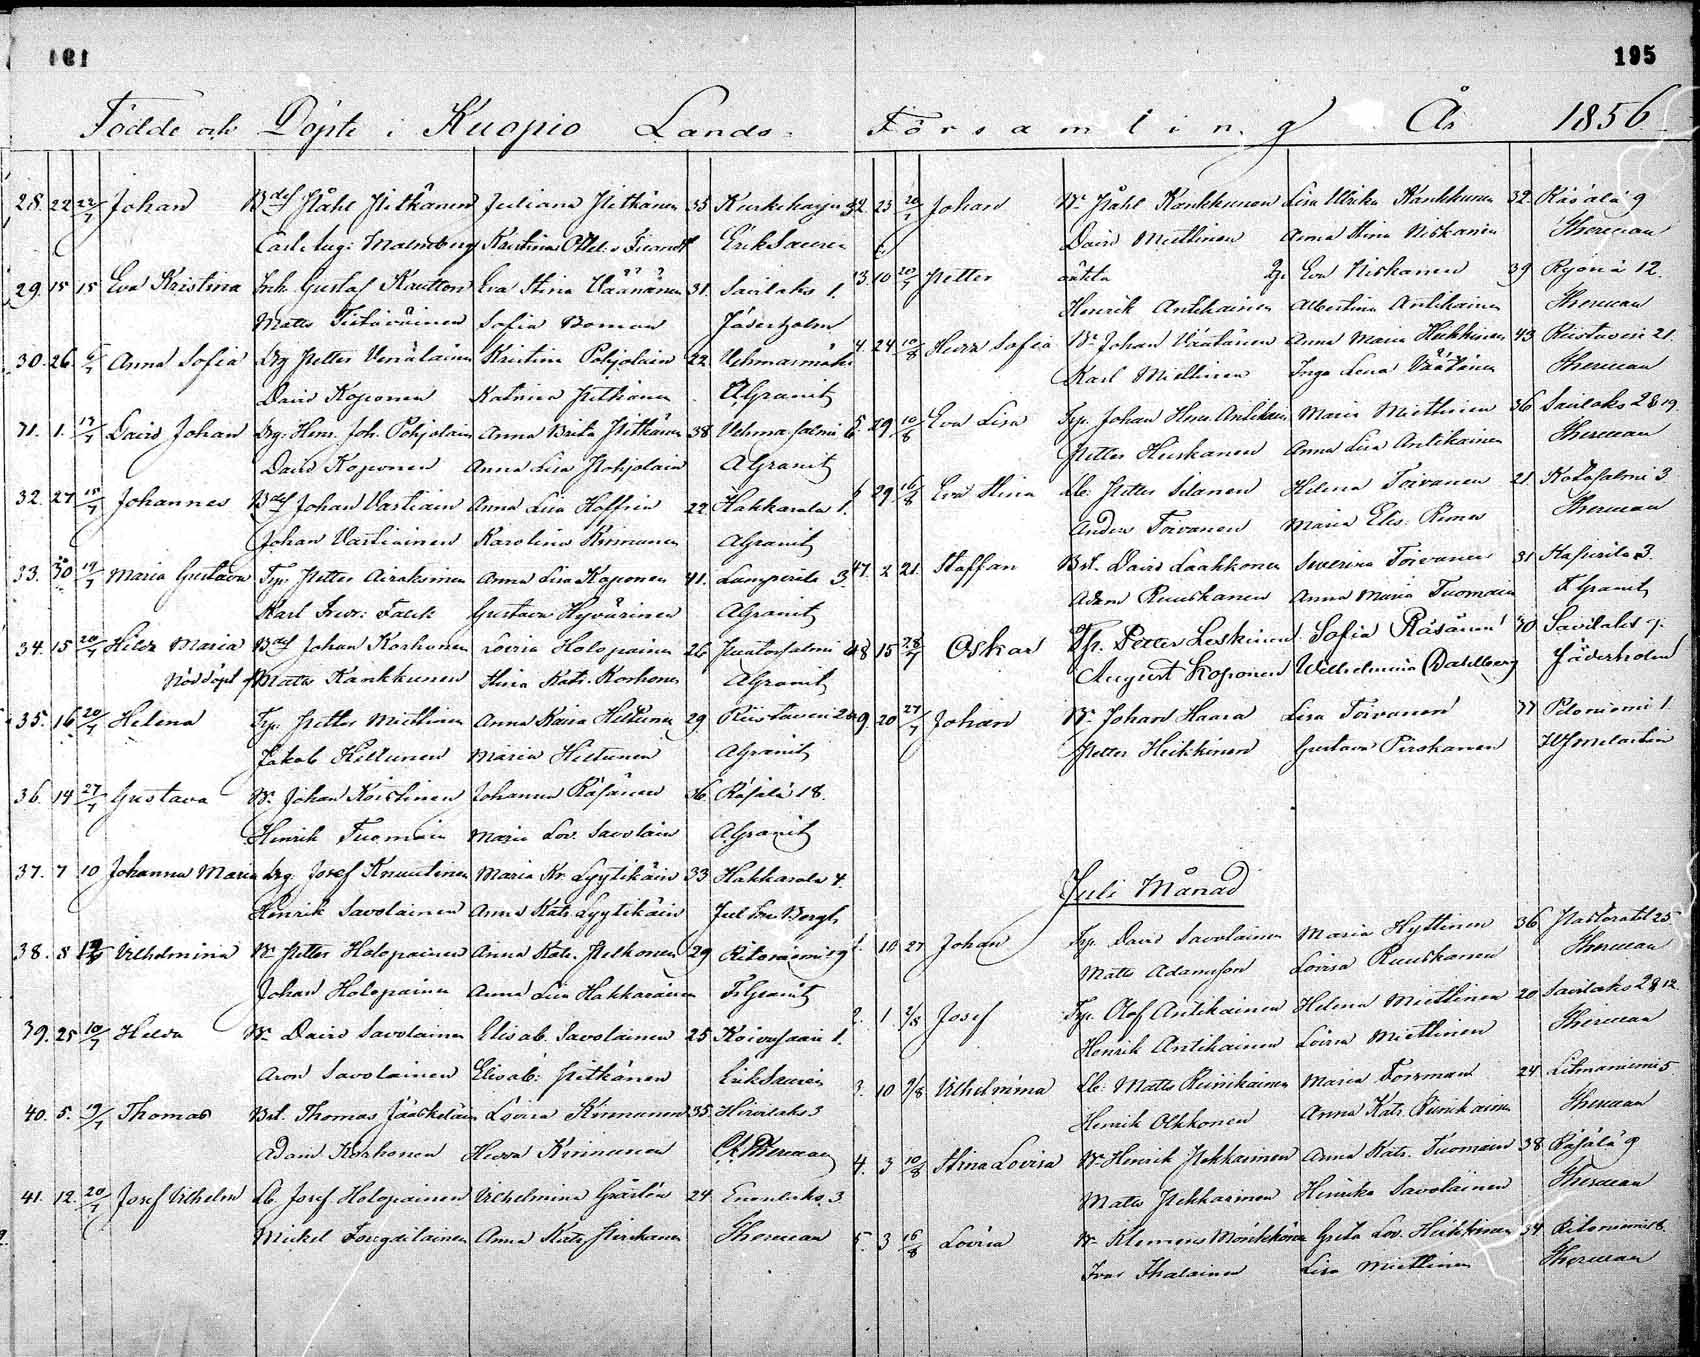 191
195
Födde och Döpte i Kuopio Lands-
Församling År 1856
28. 22 22/7 Johan Påhl Pitkänen Juliana Pitkänen 35 Kurkeharju
Carl Aug: Malmberg Erik Saurén
29. 15 15 Eva Kristina Inh. Gustaf Kautton Eva Stina Väänänen 31. Savilaks 1.
Matts Sofia Boman Jäderholm
30. 26. 6/7 Anna Sofia Drg Petter Venäläinen Kristina Pohjolain 22
David Koponen Katrina Pitkänen A Granit
1. 13/7 David Johan Drg. Henr. Joh. Pohjolain Anna Brita Pitkänen 38 Vehmasalmi 6
David Koponen Anna Lisa Pohjolain A Granit
32. 27 Johannes Johan Vartiain Anna Lisa 22 Hakkarala 1.
Johan Vartiainen Karolina Kinnunen A Granit
33. 30 Maria Gustava Trp. Petter Airaksinen Anna Lisa Koponen 41. Lamperila 3.
Karl Fredr: Falck Gustava Hyvärinen A Granit
34. 15 20/7 Hilda Maria Johan Korhonen Lovisa Holopainen 26
Nöddöpt Matts Kankkunen Stina Katr. Korhonen A Granit
35. 16 20/7 Helena Trp. Petter Miettinen Anna Kaisa Hiltunen 29 Riistaveri
Jakob Hiltunen Maria Hiltunen A Granit
36. 14 27/7 Gustava Br. Johan Koistinen Johanna Räsänen 36 Räsälä 18.
Henrik Tuomain Maria Lov. Savolain A Granit
37. 7 10 Johanna Maria Drg. Josef Knuutinen Maria Kr. Lyytikäin 33 Hakkarala 4.
Henrik Savolainen Anna Katr. Lyytikäin Jul Bergh
38. 8 Vilhelmina Br Petter Holopainen Anna Katr. Pelkonen 29 Ritoniemi 19
Johan Holopainen Anna Lisa Hakkarainen Granit
39. 25 10/7 Hilda Br David Savolainen Elisab. Savolainen 25 Koivusaari 1.
Aron Savolainen Elisab: Pitkänen Erik Saurén
40. 5. 19/7 Thomas Bst. Thomas Jääskeläin Lovisa Kinnunen 35. Hirvilaks 3
Adam Korhonen Hedda Kinnunen
41. 12. 20/7 Josef Vilhelm Lb. Josef Holopainen Vilhelmina 24. Enonlaks 3
Mickel Anna Katr. Pirskanen Therman
23 20/7 Johan Br Påhl Kankkunen Lisa Ulrika Kankkunen 32. Räsälä 9
David Miettinen Anna Stina Niskanen Therman
3. 10 20/7 Petter oäkta Eva Niskanen 39 Ryönä 12.
Henrik Antikainen Albertina Antikainen Therman
4. 24 10/8 Hedda Sofia Br Johan Väätänen Anna Maria Heikkinen 43 Riistaveri 21.
Karl Miettinen Inga Lena Väätänen Therman
5. 29 10/8 Eva Lisa Trp. Johan Henr. Antikain Maria Miettinen 36 Savilaks 2 & 19.
Petter Heiskanen Anna Lisa Antikainen Therman
6 29 16/8 Eva Stina Lb. Petter Silanen Helena Toivanen 21. Kotasalmi 3
Anders Toivanen Maria Elis. Therman
47. 2 21. Staffan Bst. David Laakkonen Severina Toivanen 31 3.
Adam Ruuskanen Anna Maria Tuomain F Granit
48 15 28/7 Oskar Petter Leskinen Sofia Räsänen 30 Savilaks 9.
August Koponen Wilhelmina Dahlberg Jäderholm
49. 20 27/7 Johan Br. Johan Haara Lisa Toivanen Peloniemi 1.
Petter Heikkinen Gustava Pirskanen
Juli Månad
1. 10 27 Johan Trp. David Savolainen Maria Hyttinen 36 Pastoratet 25
Matts Adamsson Lovisa Ruuskanen Therman
2. 1 2/8 Josef Trp. Olof Antikainen Helena Miettinen 20 Savilaks 2 & 12.
Henrik Antikainen Lovisa Miettinen Therman
3. 10 9/8 Vilhelmina Lb. Matts Riinikainen Maria Forsman 24 Litmaniemi 5
Henrik Olkkonen Anna Katr. Riinikainen Therman
4. 3 10/8 Stina Lovisa Br Henrik Pekkarinen Anna Katr. Tuomain 38 Räsälä 9
Matts Pekkarinen Henrika Savolainen Therman
5. 3 16/8 Lovisa Br Klemens Mönkkönen Greta Lov. Heikkinen 34 Ritoniemi 8.
Ivar Ihalainen Lisa Miettinen Therman